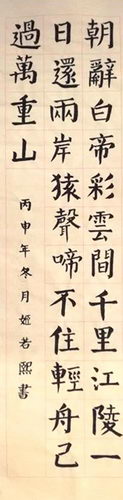 朝辭白帝彩雲間千里江陵一
日還兩岸猿聲啼不住輕舟已
過萬重山
丙申年冬月姬若熙書